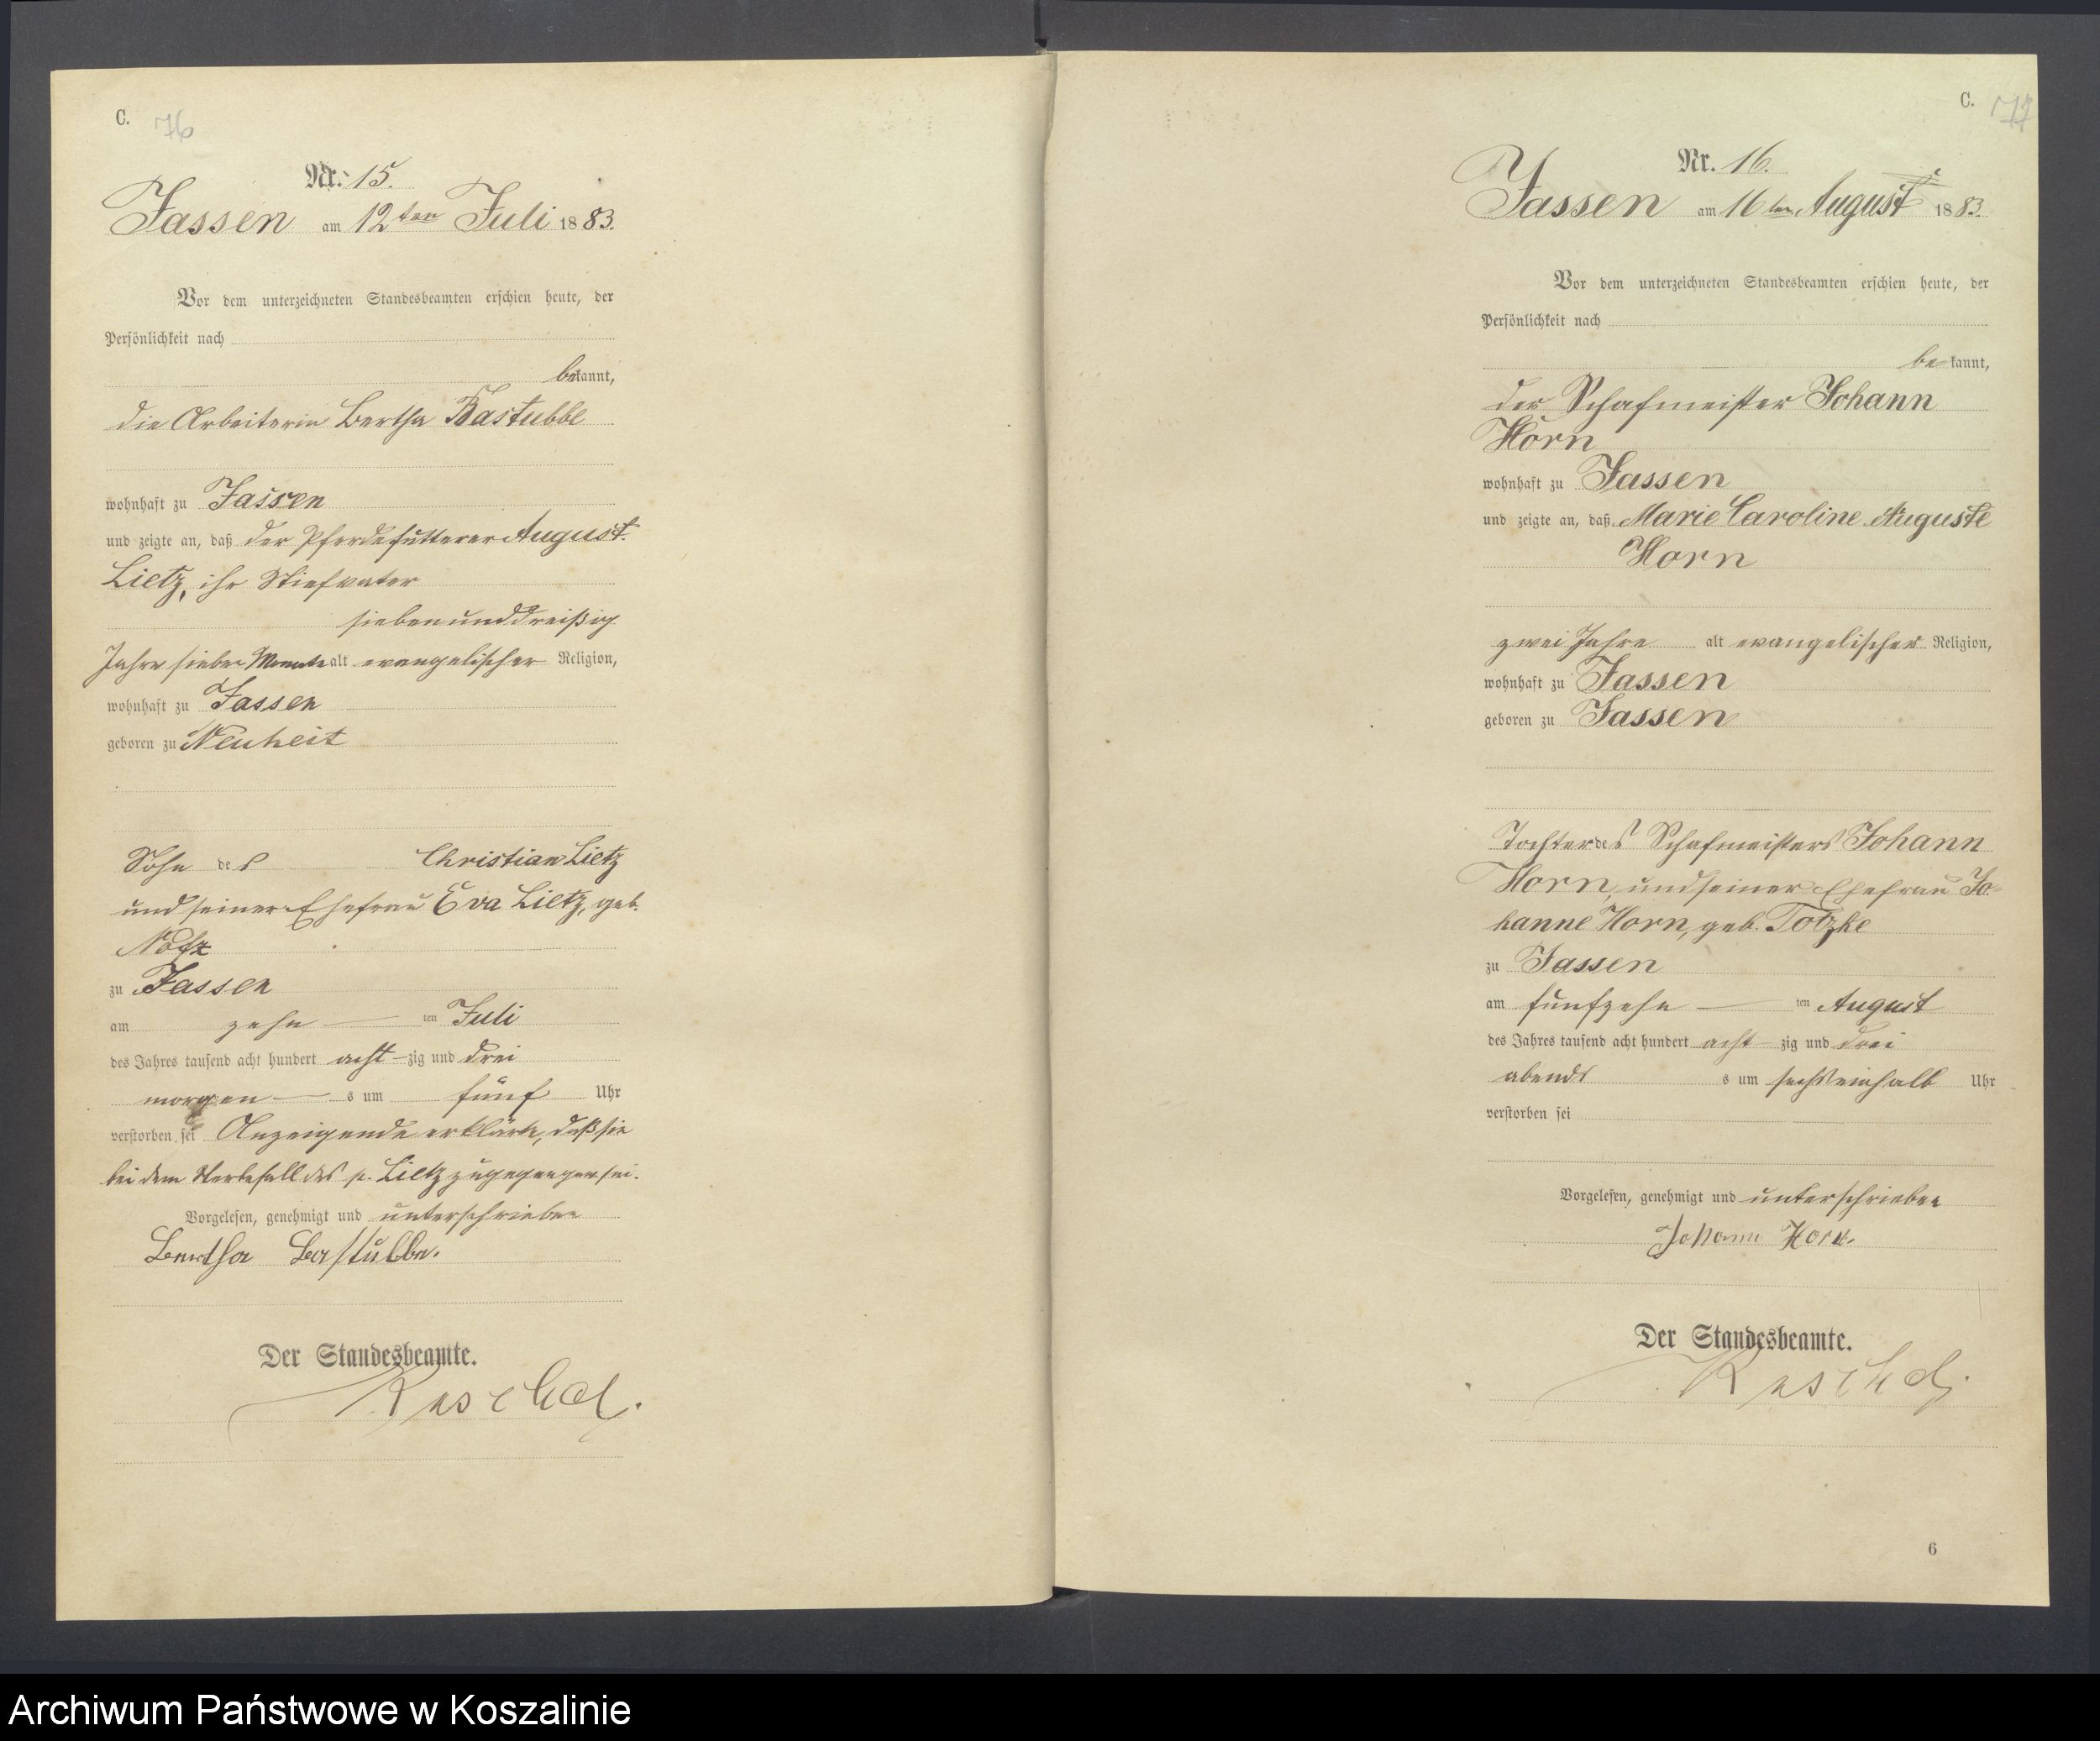 C. 76
Nr. 15.
Jassen am 12ten Juli 1883.
Vor dem unterzeichneten Standesbeamten erschien heute, der
Persönlichkeit nach
bekannt,
die Arbeiterin Bertha Bastubbe
wohnhaft zu Jassen
und zeigte an, daß der Pferdefutterer August
Lietz, ihr Stiefvater
siebenunddreißig
Jahre sieben Monate alt evangelischer Religion,
wohnhaft zu Jassen
geboren zu Neuheit
Sohn des Christian Lietz
und seiner Ehefrau Eva Lietz, geb.
zu Jassen
am zehn ten Juli
des Jahres tausend acht hundert acht zig und drei
morgen s um fünf Uhr
verstorben sei Anzeigende erklärte, daß sie
bei dem Sterbefall des p. Lietz zugegangen sei.
Vorgelesen, genehmigt und unterschrieben
Bertha Bastubbe.
Der Standesbeamte.
C. 77
Nr. 16.
Jassen am 16ten August 1883.
Vor dem unterzeichneten Standesbeamten erschien heute, der
Persönlichkeit nach
be kannt,
der Schafmeister Johann
Horn
wohnhaft zu Jassen
und zeigte an, daß Marie Caroline Auguste
Horn
zwei Jahre alt evangelischer Religion,
wohnhaft zu Jassen
geboren zu Jassen
Tochter des Schafmeisters Johann
Horn, und seiner Ehefrau Jo-
hanne Horn, geb. Totzke
zu Jassen
am fünfzehn ten August
des Jahres tausend acht hundert acht zig und drei
abends s um sechseinhalb Uhr
verstorben sei
Vorgelesen, genehmigt und unterschrieben
Johann Horn.
Der Standesbeamte.
6
Archiwum Państwowe w Koszalinie